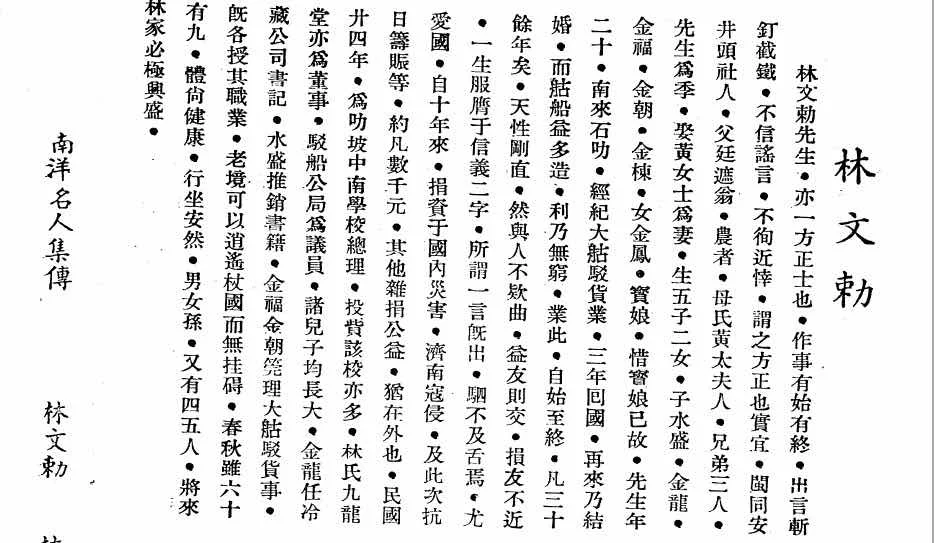 林文勅
林文勅先生•亦一方正士也•作事有始有終•出言斬
釘截鐵•不信謠言•不徇近悻•謂之方正也實宜•閩同安
井頭社人•父廷遮翁•農者•母氏黃太夫人•兄弟三人•
先生爲季•娶黃女士爲妻•生五子二女•子水盛•金龍•
金福•金朝•金棟•女金鳳•寳娘•惜寳娘已故•先生年
二十•南來石叻•經紀大䑩駁貨業•三年囘國•再來乃結
婚•而䑩船益多造•利乃無窮•業此•自始至終•凡三十
餘年矣•天性剛直•然與人不欵曲•益友則交•損友不近
•一生服膺于信義二字•所謂一言旣出•駟不及舌焉•尤
愛國•自十年來•捐資于國內災害•濟南寇侵•及此次抗
日籌賑等•約凡數千元•其他雜捐公益•猶在外也•民國
廿四年•爲叻坡中南學校總理•投貲該校亦多•林氏九龍
堂亦爲董事•駁船公局爲議員•諸兒子均長大•金龍任冷
藏公司書記•水盛推銷書籍•金福金朝筦理大䑩駁貨事•
旣各授其職業•老境可以逍遙杖國而無挂碍•春秋雖六十
有九•體尙健康•行坐安然•男女孫•又有四五人•將來
林家必極興盛•
南洋名人集傳
林文勅